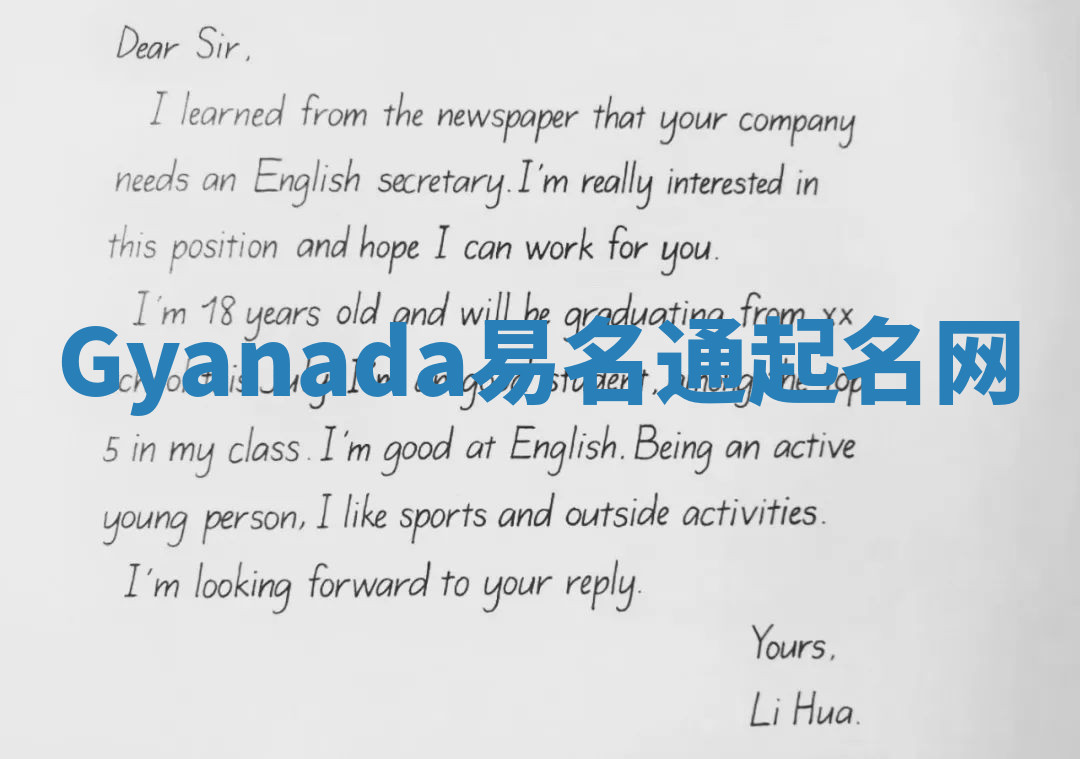 Dear Sir,
I learned from the newspaper that your company
needs an English secretary. I'm really interested in
this position and hope I can work for you.
I'm 18 years old and will be graduating from xx
Gyanada易名通起名网
5 in my class. I'm good at English. Being an active
young person, I like sports and outside activities.
I'm looking forward to your reply.
Yours,
Li Hua.